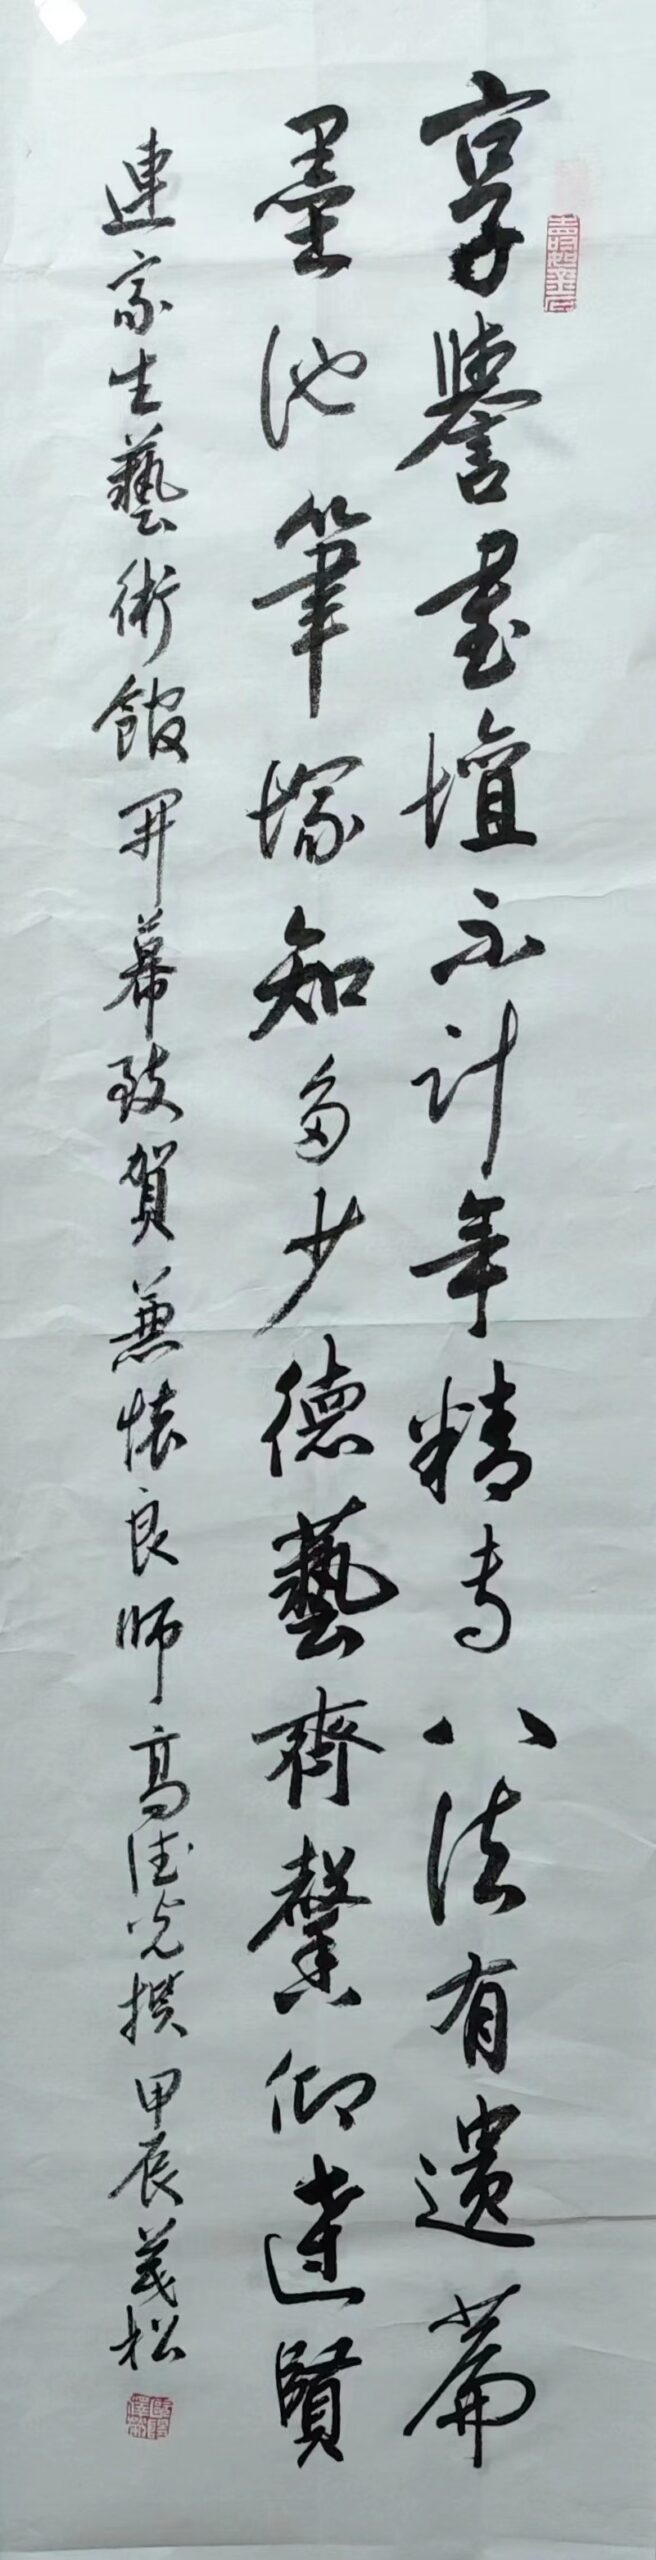 享譽書壇不計年精專八法有遺篇
墨池筆塚知多少德藝齊馨仰達賢
連家生藝術館開幕致賀兼懷良師高德光撰甲辰義松